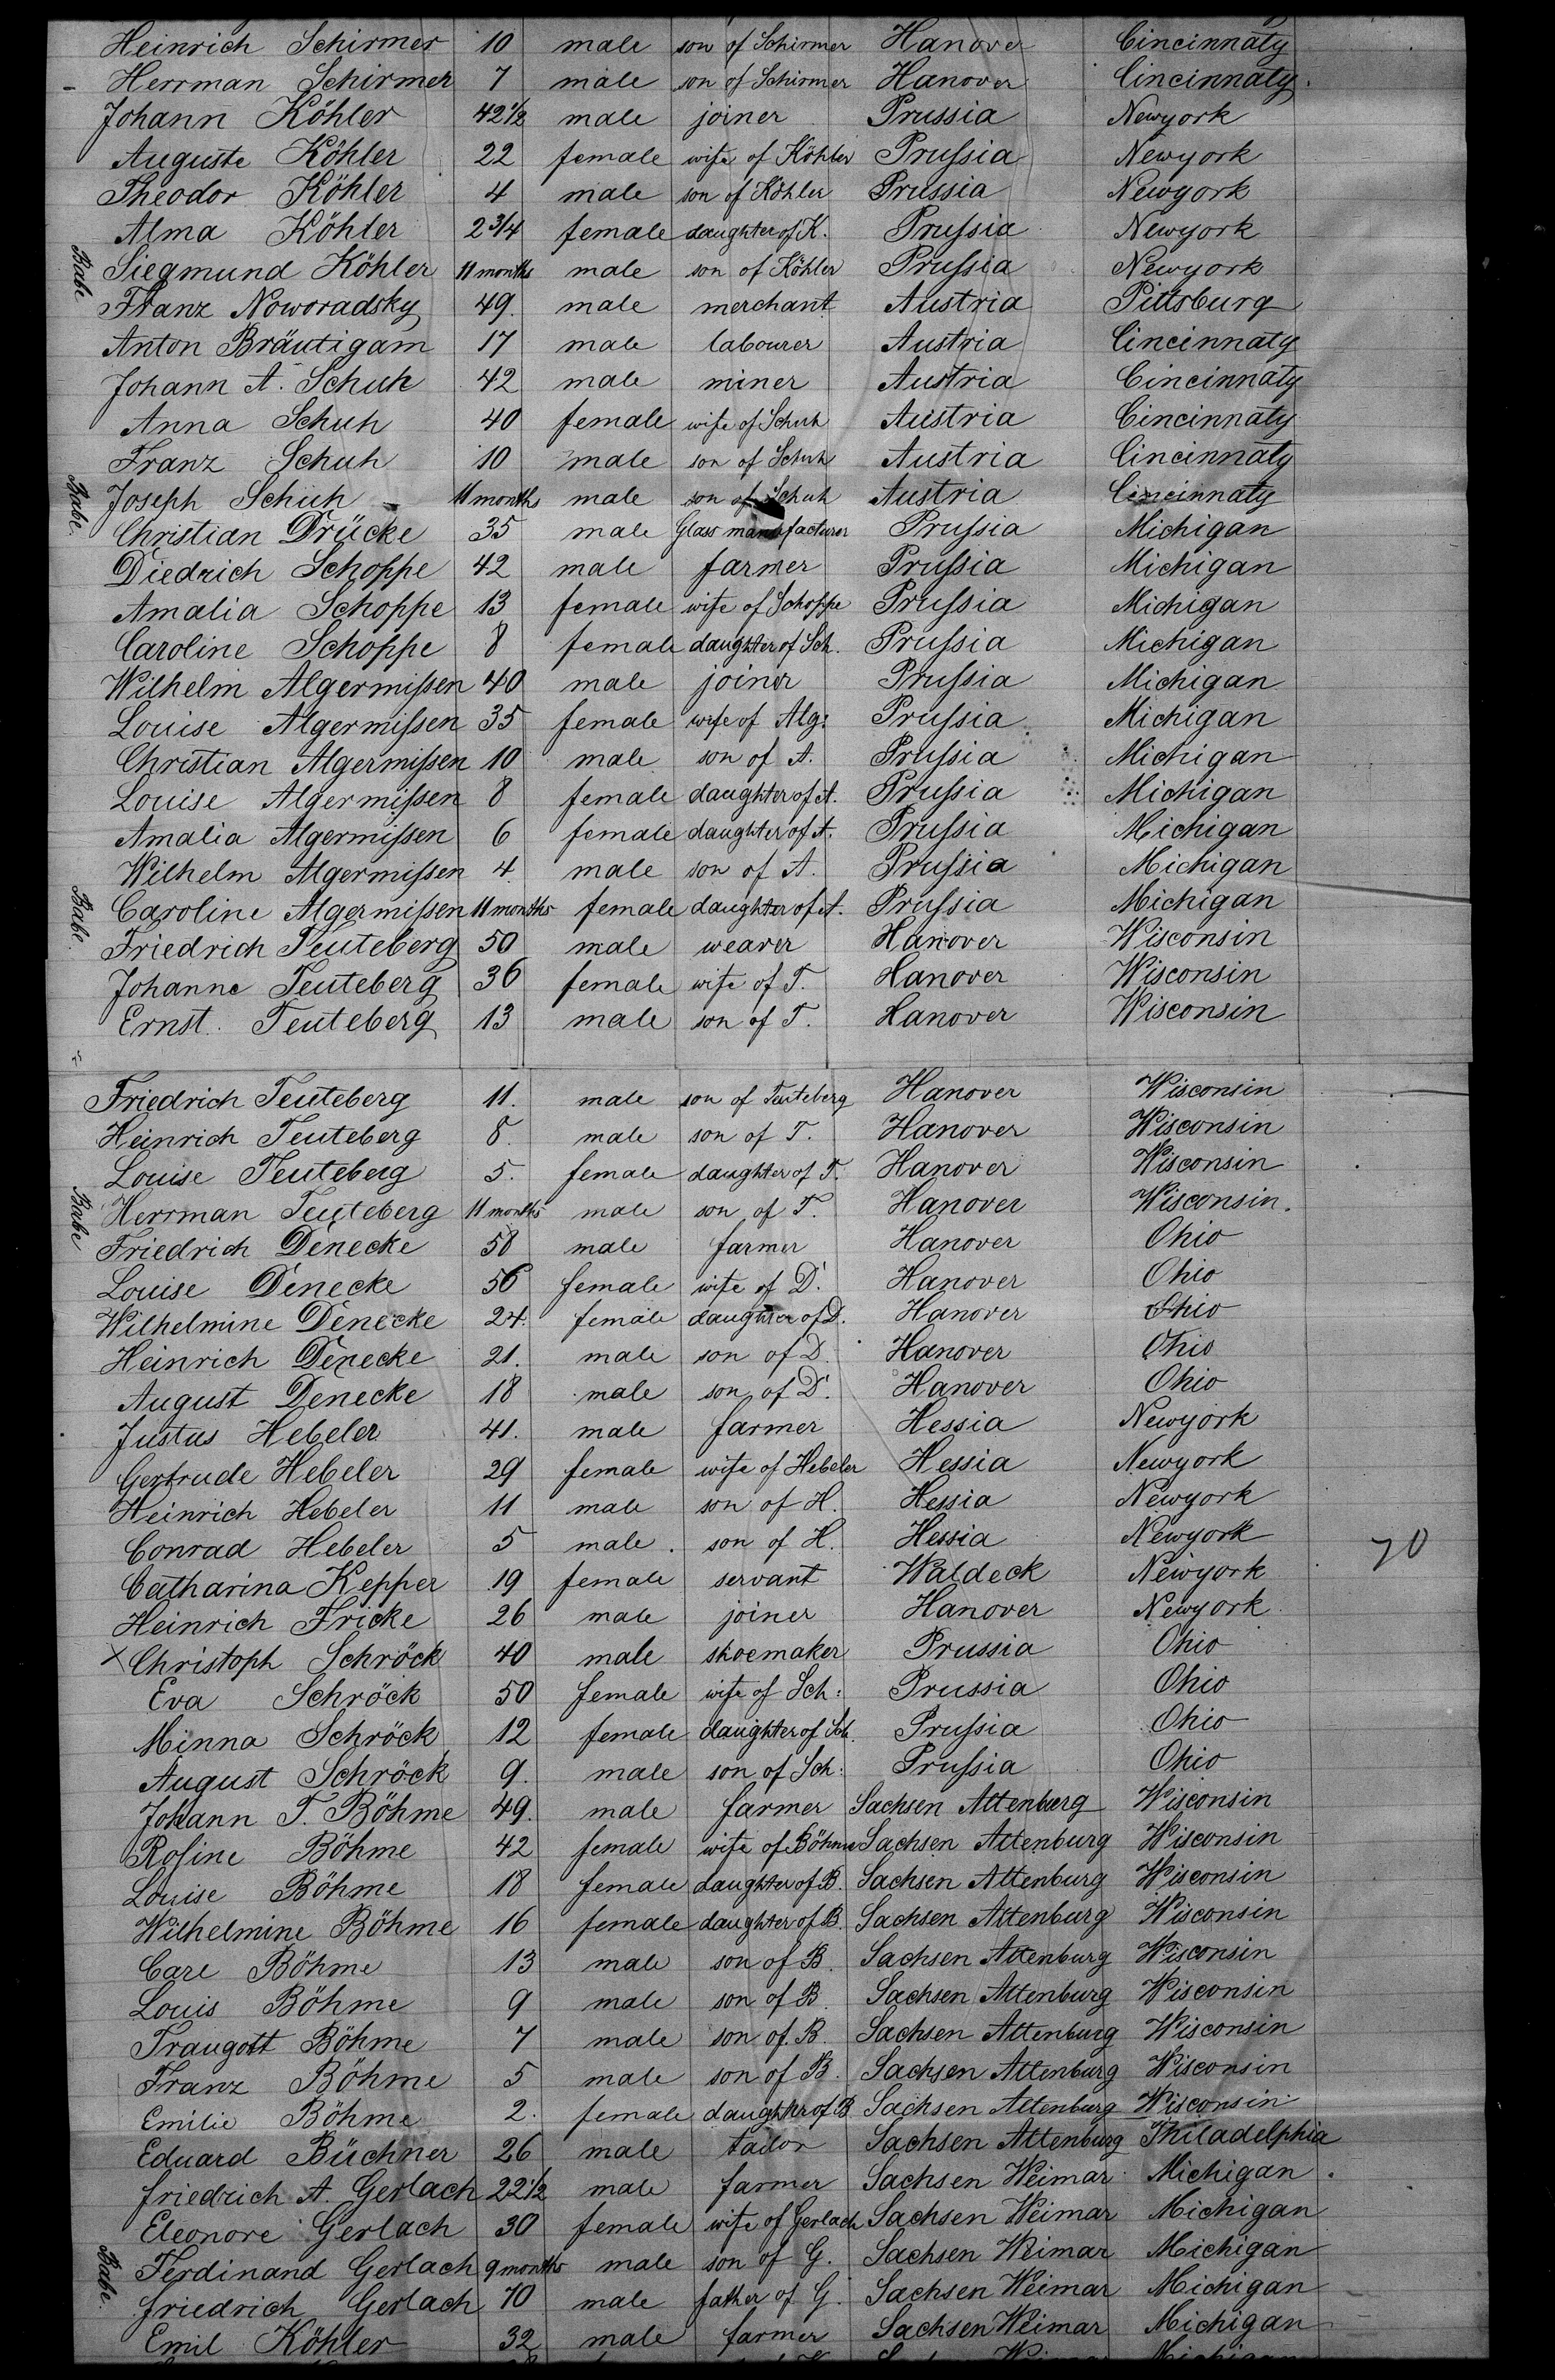 Heinrich Schirmer 10 male son of Schirmer Hanover Cincinnaty
Herrman Schirmer 7 male son of Schirmer Hanover Cincinnaty.
Johann Köhler 42 1/2 male joiner Prussia Newyork
Auguste Köhler 22 female wife of Köhler Pruſsia Newyork
Theodor Köhler 4 male son of Köhler Prussia Newyork
Alma Köhler 2 3/4 female daughter of K. Pruſsia Newyork
Babe Siegmund Köhler 11 months male son of Köhler Pruſsia Newyork
Franz Noworadsky 49. male merchant Austria Pittsburg
Anton Bräutigam 17 male labourer Austria Cincinnaty
Johann A. Schuh 42 male miner Austria Cincinnaty
Anna Schuh 40 female wife of Schuh Austria Cincinnaty
Franz Schuh 10 male son of Schuh Austria Cincinnaty
Babe. Joseph Schuh 11 months male son of Schuh Austria Cincinnaty
Christian Drücke 35 male Glass manufacturer Pruſsia Michigan
Diedrich Schoppe 42 male farmer Pruſsia Michigan
Amalia Schoppe 13 female wife of Schoppe Pruſsia Michigan
Caroline Schoppe 8 female daughter of Sch. Pruſsia Michigan
Wilhelm Algermiſsen 40 male joiner Pruſsia Michigan
Louise Algermiſsen 35 female wife of Alg: Pruſsia Michigan
Christian Algermiſsen 10 male son of A. Pruſsia Michigan
Louise Algermiſsen 8 female daughter of A. Pruſsia Michigan
Amalia Algermiſsen 6 female daughter of A. Pruſsia Michigan
Wilhelm Algermiſsen 4 male son of A. Pruſsia Michigan
Babe. Caroline Algermiſsen 11 months female daughter of A. Pruſsia Michigan
Friedrich Teuteberg 50 male weaver Hanover Wisconsin
Johanne Teuteberg 36 female wife of T. Hanover Wisconsin
Ernst. Teuteberg 13 male son of T. Hanover Wisconsin
Friedrich Teuteberg 11. male son of Teuteberg Hanover Wisconsin
Heinrich Teuteberg 8. male son of T. Hanover Wisconsin
Louise Teuteberg 5. female daughter of T. Hanover Wisconsin
Babe Herrman Teuteberg 11 months male son of T. Hanover Wisconsin.
Friedrich Denecke 58 male farmer Hanover Ohio
Louise Denecke 56 female wife of D. Hanover Ohio
Wilhelmine Denecke 24. female daughter of D. Hanover Ohio
Heinrich Denecke 21. male son of D. Hanover Ohio
August Denecke 18 male son of D. Hanover Ohio
Justus Hebeler 41. male farmer Hessia Newyork
Gertrude Hebeler 29 female wife of Hebeler Hessia Newyork
Heinrich Hebeler 11 male son of H. Hessia Newyork
Conrad Hebeler 5 male. son of H. Hessia Newyork 70
Catharina Kepper 19 female servant Waldeck Newyork
Heinrich Fricke 26 male joiner Hanover Newyork
X Christoph Schröck 40 male shoemaker Prussia Ohio
Eva Schröck 50 female wife of Sch: Prussia Ohio
Minna Schröck 12 female daughter of Sch. Pruſsia Ohio
August Schröck 9. male son of Sch: Pruſsia Ohio
Johann T. Böhme 49. male farmer Sachsen Altenburg Wisconsin
Roſine Böhme 42 female wife of Böhme Sachsen Altenburg Wisconsin
Louise Böhme 18 female daughter of B. Sachsen Altenburg Wisconsin
Wilhelmine Böhme 16 female daughter of B. Sachsen Altenburg Wisconsin
Carl Böhme 13 male son of B. Sachsen Altenburg Wisconsin
Louis Böhme 9 male son of B. Sachsen Altenburg Wisconsin
Traugott Böhme 7 male son of B. Sachsen Altenburg Wisconsin
Franz Böhme 5 male son of B. Sachsen Altenburg Wisconsin
Emilie Böhme 2. female daughter of B Sachsen Altenburg Wisconsin
Eduard Büchner 26 male tailor Sachsen Altenburg Philadelphia
Friedrich A. Gerlach 22 1/2 male farmer Sachsen Weimar Michigan.
Eleonore Gerlach 30 female wife of Gerlach Sachsen Weimar Michigan
Babe. Ferdinand Gerlach 9 months male son of G. Sachsen Weimar Michigan
Friedrich Gerlach 70 male father of G. Sachsen Weimar Michigan
Emil Köhler 32 male farmer Sachsen Weimar Michigan